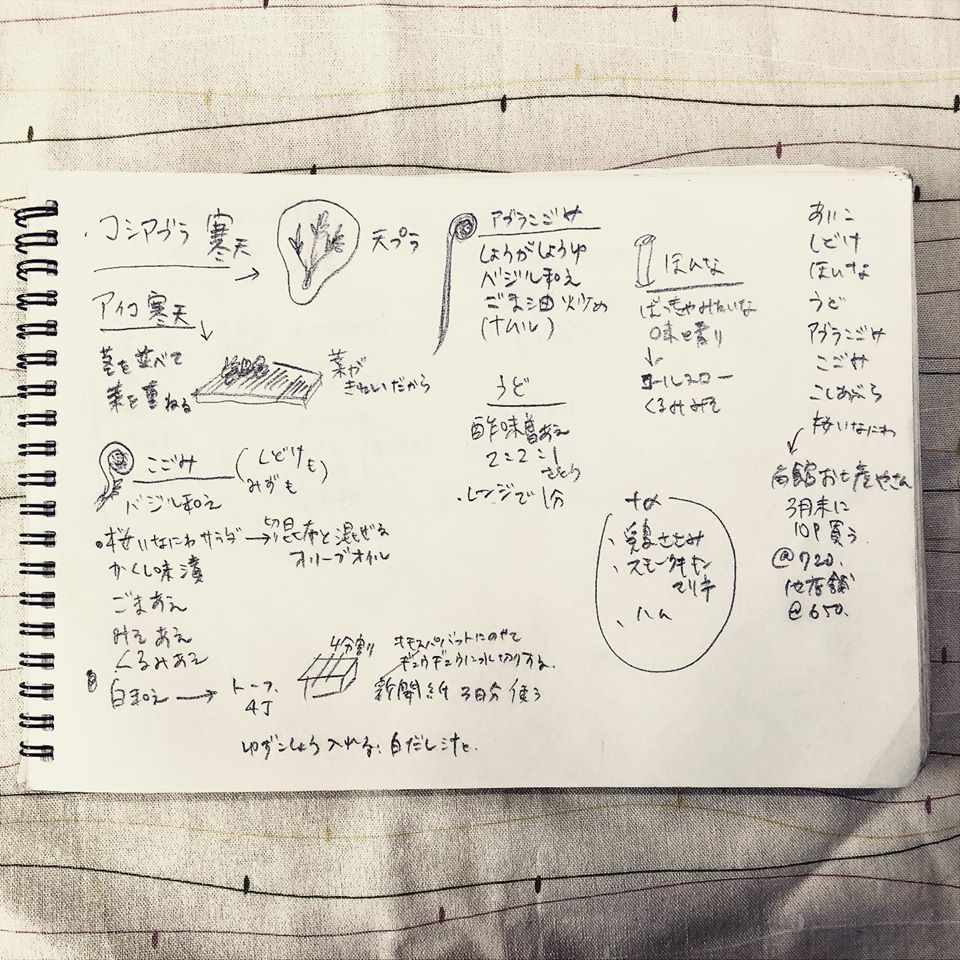 ・コシアブラ 寒天
天プラ
アイコ寒天
茎を並べて
葉を重ねる
葉が
きれいだから
こごみ
(しどけも
みずも)
バジル和え
桜いなにわサラダ→切昆布と混ぜる
オリーブオイル
かくし味 漬
ごまあえ
みそあえ
くるみあえ
白和え → トーフ
4丁
4分割
ギュウギュウに水切りする。
新聞紙 3日分使う
ゆずこしょう入れる:白だし汁と
アブラこごみ
しょうがしょうゆ
バジル和え
ごま油炒め
(ナムル)
うど
酢味噌あえ
・レンジで1分
ほんな
ばっきゃみたいな
味と香り
コールスロー
くるみみそ
・鶏ささみ
・スモークチキン
・ハム
あいこ
しどけ
ほんな
うど
アブラこごみ
こごみ
こしあぶら
桜いなにわ
角館お土産やさん
3月末に
10P買う
@720.
他店舗
@650.